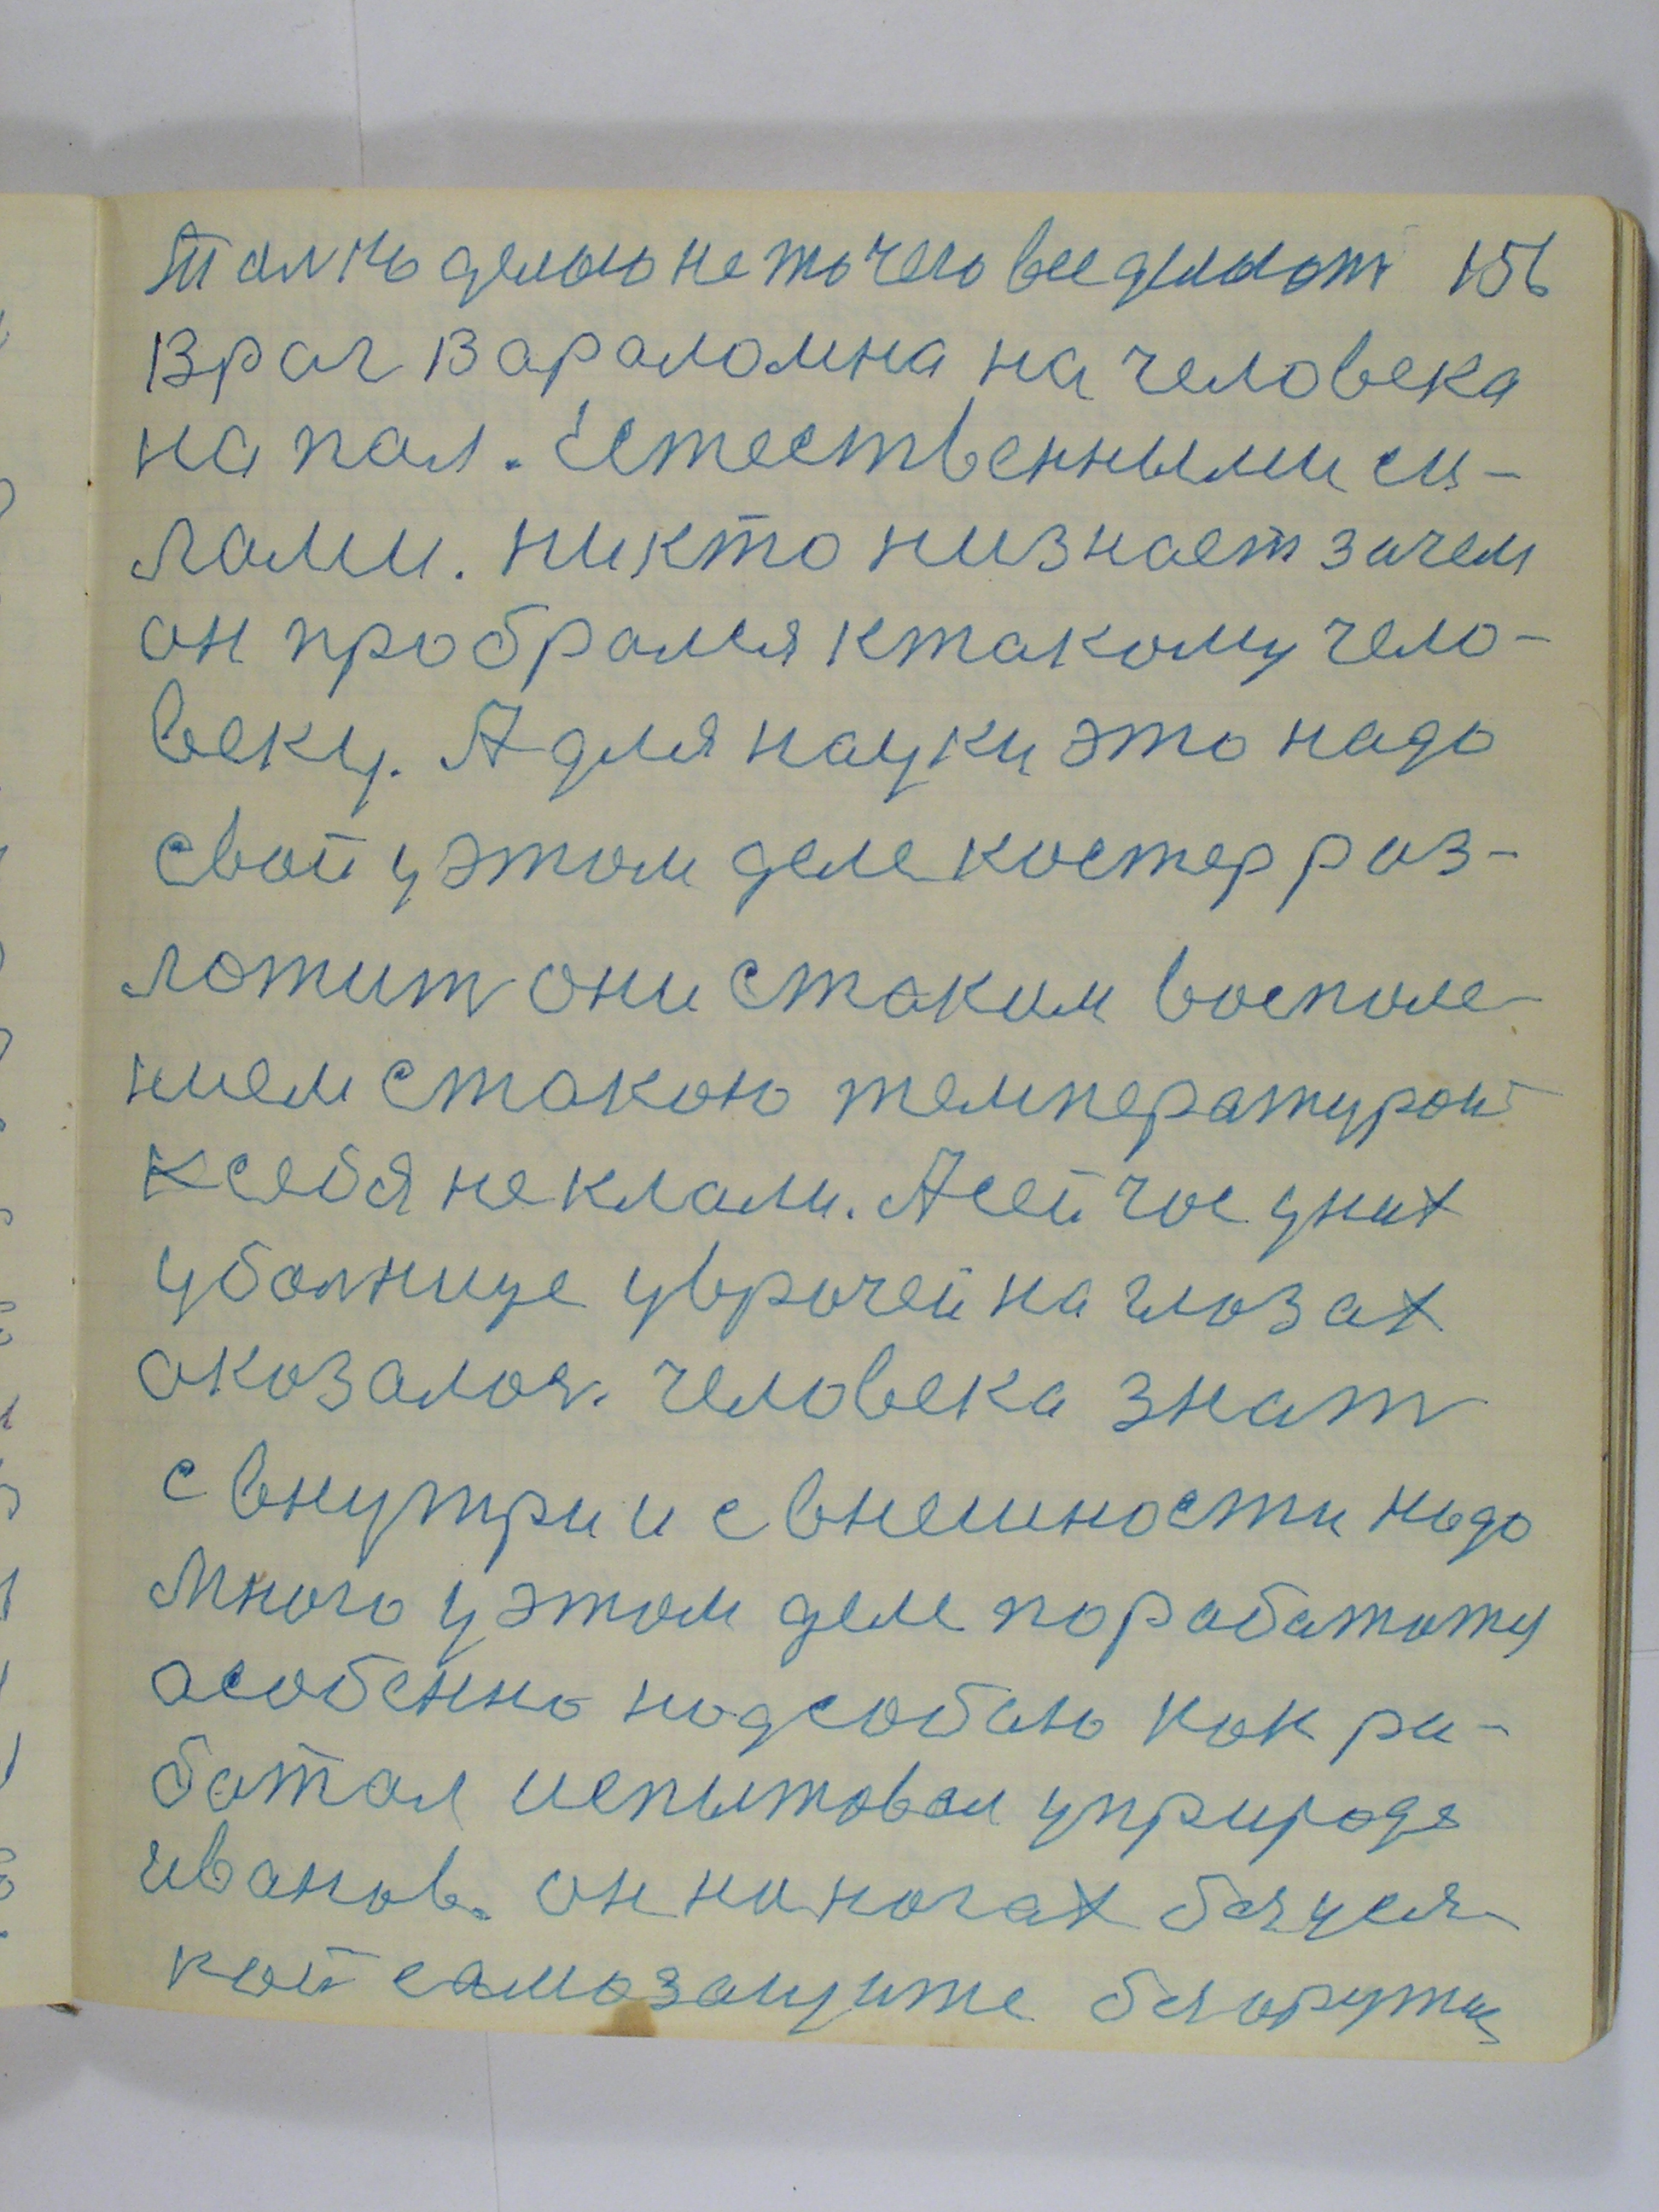 толко делаю не то чего все делают 156
враг вараломна на человека
напал. Естественными си-
лами. никто низнает зачем
он пробрался ктакому чело-
веку. А для науки это надо
свой у этом деле костер раз-
ложит они стаким восполе-
нием стакою температурой
к себя не клали. А сейчас уних
уболнице уврачей на глазах
оказалоя. человека знат
с внутри и с внешности надо
много у этом деле поработату
особенно надсобаю как ра-
ботал испытовал уприроде
иванов. он на ногах безуся-
кой самозащите безоружи